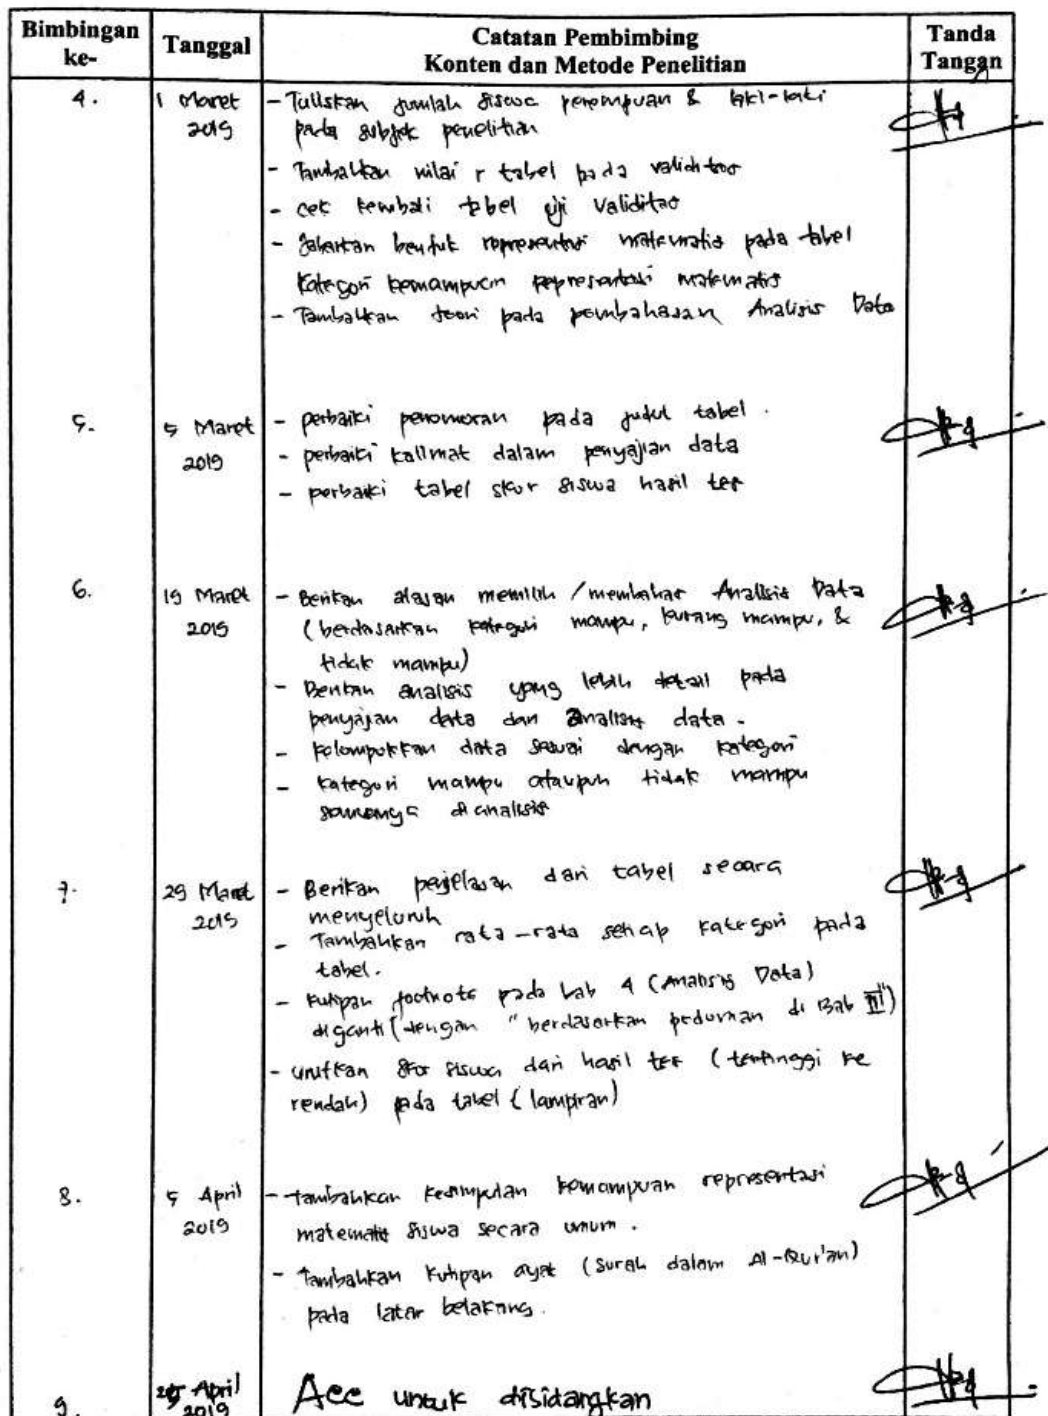 Bimbingan ke- Tanggal Catatan Pembimbing Konten dan Metode Penelitian Tanda Tangan
4. 1 Maret 2019 - Tuliskan jumlah siswa perempuan & laki-laki
pada subjek penelitian
- Tambahkan nilai r tabel pada validitas
- cek kembali tabel uji validitas
- Jabarkan bentuk representasi matematis pada tabel
kategori kemampuan representasi matematis
- Tambahkan teori pada pembahasan Analisis Data
5. 5 Maret 2019 - perbaiki penomoran pada judul tabel.
- perbaiki kalimat dalam penyajian data
- perbaiki tabel skor siswa hasil tes
6. 19 Maret 2019 - Berikan alasan memilih / membahas Analisis Data
(berdasarkan kategori mampu, kurang mampu, &
tidak mampu)
- Berikan analisis yang lebih detail pada
penyajian data dan analisis data.
- kelompokkan data sesuai dengan kategori
- kategori mampu ataupun tidak mampu
semuanya dianalisis
7. 29 Maret 2019 - Berikan penjelasan dari tabel secara
menyeluruh
- Tambahkan rata-rata setiap kategori pada
tabel.
- kutipan footnote pada bab 4 (Analisis Data)
diganti (dengan "berdasarkan pedoman di Bab III")
- urutkan skor siswa dari hasil tes (tertinggi ke
rendah) pada tabel (lampiran)
8. 5 April 2019 - tambahkan kesimpulan kemampuan representasi
matematis siswa secara umum.
- Tambahkan kutipan ayat (surah dalam Al-Qur'an)
pada latar belakang.
9. April 2019 Acc untuk disidangkan